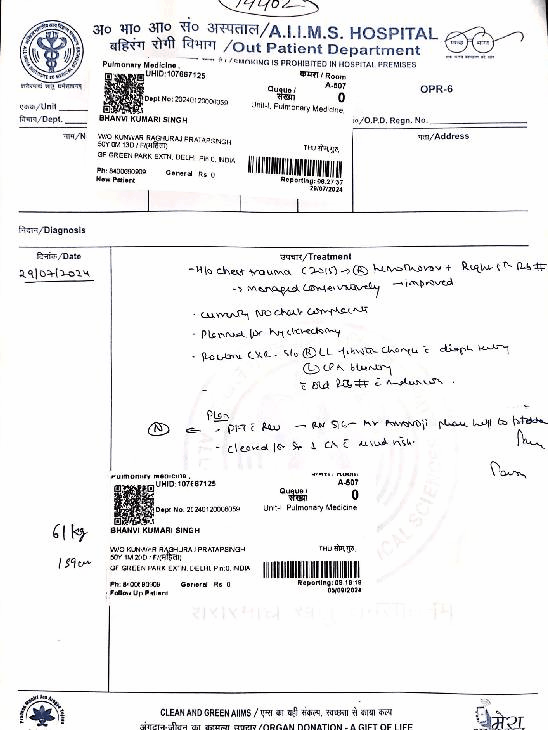 14402
अ० भा० आ० सं० अस्पताल/A.I.I.M.S. HOSPITAL
बहिरंग रोगी विभाग /Out Patient Department
SMOKING IS PROHIBITED IN HOSPITAL PREMISES
Pulmonary Medicine,
UHID:107687125
कमरा / Room
A-607
Queue /
संख्या
0
OPR-6
एकक/Unit
विभाग/Dept.
Dept No: 20240120006059
Unit-I, Pulmonary Medicine
BHANVI KUMARI SINGH
/O.P.D. Regn. No.
नाम/N
W/O KUNWAR RAGHURAJ PRATAPSINGH
50Y 0M 13D / F/(महिला)
GF GREEN PARK EXTN, DELHI, Pin:0, INDIA
THU सोम,गुरु,
पता/Address
Ph: 8400690909
General Rs 0
New Patient
Reporting: 08:27:37
29/07/2024
निदान/Diagnosis
दिनांक/Date
उपचार/Treatment
29/07/2024
- H/o chest trauma (2015) → (R) hemothorax + Right 5th Rib #
→ Managed conservatively → improved
- Currently No chest complaints
- Planned for hysterectomy
- Routine CXR - s/o (R) LL fibrotic change c diaph tenting
(L) CPA blunting
c old Rib #
Plan
(N) ← - PFT
- cleared for Sx
Pulmonary Medicine,
UHID:107687125
A-607
Queue /
संख्या
0
Dept No: 20240120006059
Unit-I Pulmonary Medicine
BHANVI KUMARI SINGH
61 kg
159 cm
W/O KUNWAR RAGHURAJ PRATAPSINGH
50Y 1M 20D / F/(महिला)
GF GREEN PARK EXTN, DELHI, Pin:0, INDIA
THU सोम,गुरु,
Ph: 8400690909
General Rs 0
Follow Up Patient
Reporting: 08:18:19
05/09/2024
CLEAN AND GREEN AIIMS / एम्स का यही संकल्प, स्वच्छता से काया कल्प
अंगदान-जीवन का बहुमूल्य उपहार/ORGAN DONATION - A GIFT OF LIFE